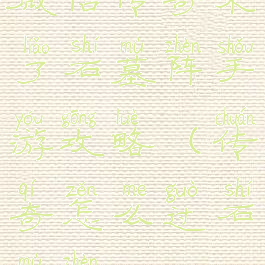 liǎo shí mù zhèn shǒu
了石墓阵手
yóu gōng lüè chuán
游攻略（传
qí zěn me guò shí
奇怎么过石
mù zhèn